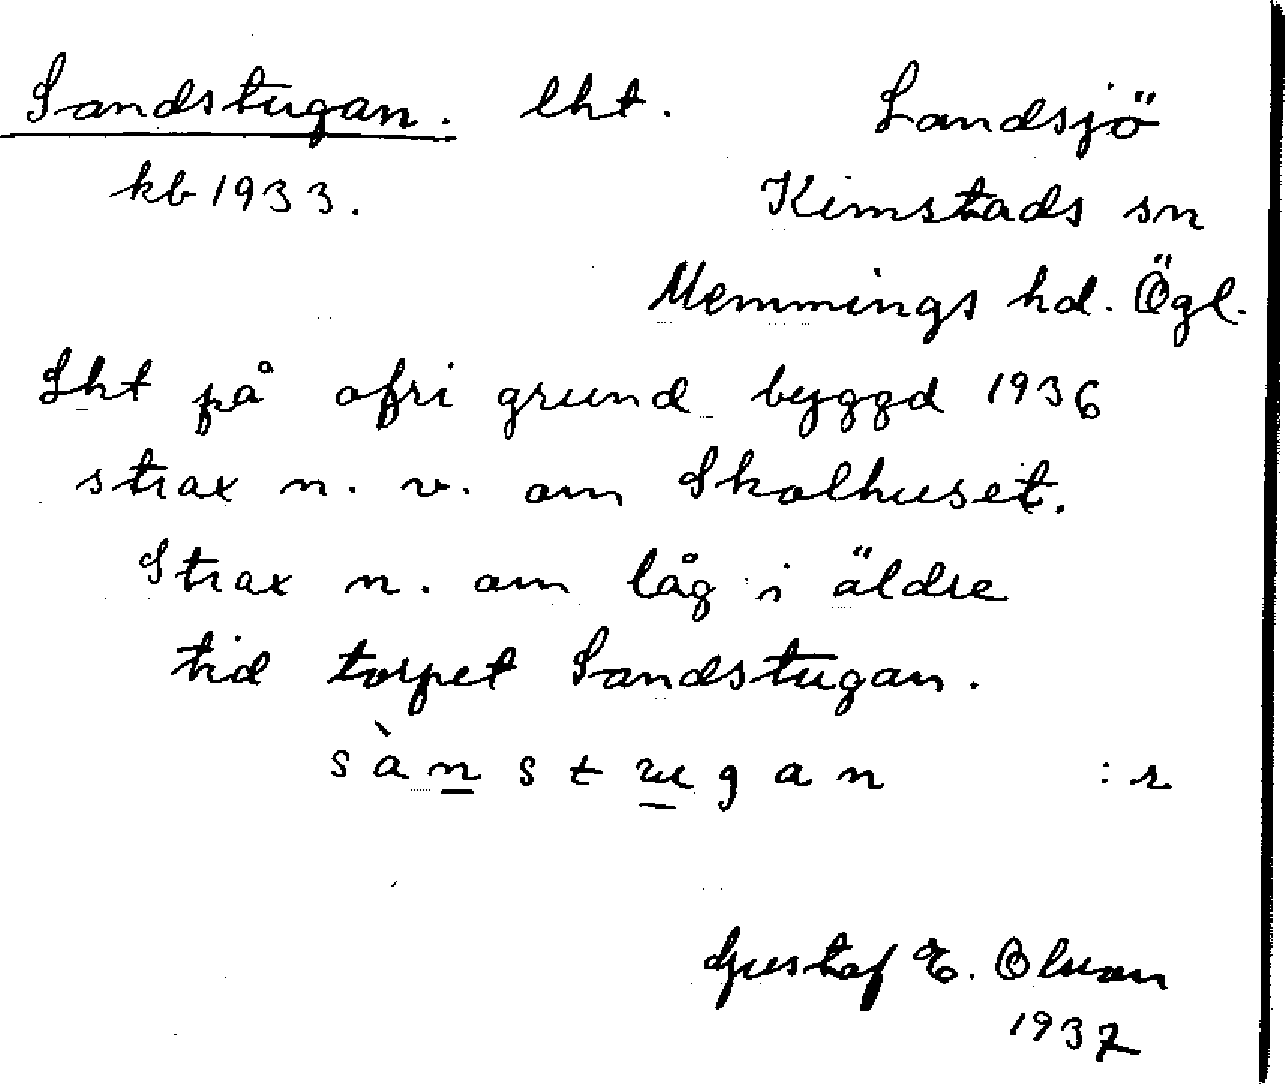 Sandstugan. lht. Landsjö
kb 1933. Kimstads sn
Memmings hd. Ögl.
Lht på ofri grund byggd 1936
strax n. v. om Skolhuset.
Strax n. om låg i äldre
tid torpet Sandstugan.
sànstugan :r
Gustaf E. Olsson
1937